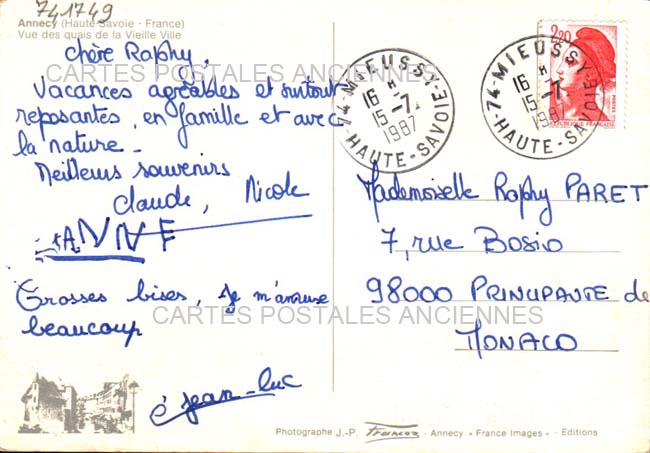 741749
Annecy (Haute-Savoie - France)
Vue des quais de la Vieille Ville
chère Raphy,
Vacances agréables et surtout
reposantes, en famille et avec
la nature -
Meilleurs souvenirs
Claude, Nicole
ANNE
Grosses bises, Je m'amuse
beaucoup
jean-luc
CARTES POSTALES ANCIENNES
CARTES POSTALES ANCIENNES
74-MIEUSSY
16 H
15-7
1987
HAUTE-SAVOIE
74-MIEUSSY
16 H
15-7
1987
HAUTE-SAVOIE
2,20
REPUBLIQUE FRANÇAISE
Mademoiselle Raphy PARET
7, rue Bosio
98000 PRINCIPAUTE de
MONACO
Photographe J.-P. - Annecy « France Images » - Editions